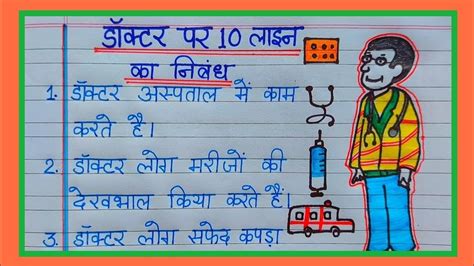 डॉक्टर पर 10 लाइन
का निबंध
1. डॉक्टर अस्पताल में काम
करते है।
2. डॉक्टर लोग मरीजों की
देखभाल किया करते हैं।
3. डॉक्टर लोग सफेद कपड़ा